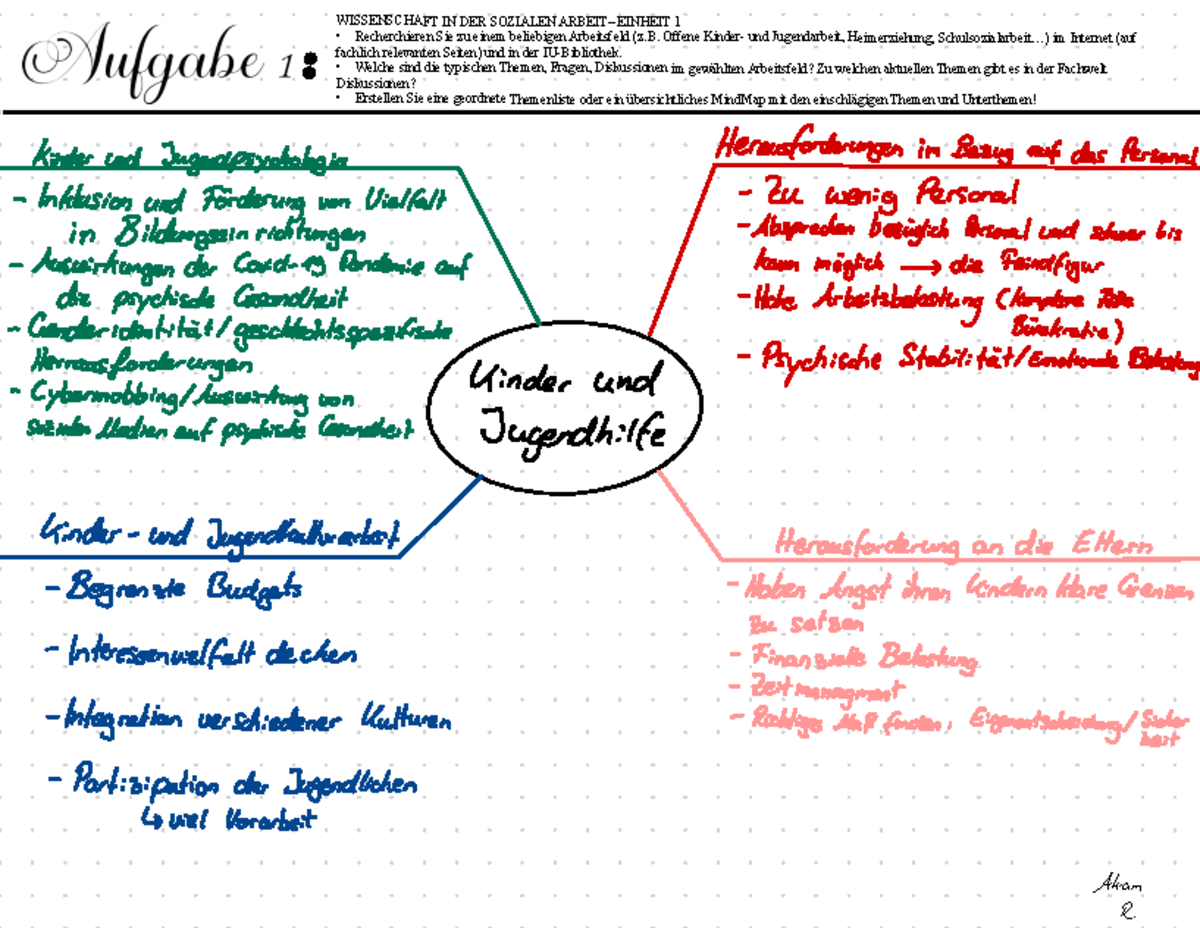 Aufgabe 1:
WISSENSCHAFT IN DER SOZIALEN ARBEIT – EINHEIT 1
• Recherchieren Sie zu einem beliebigen Arbeitsfeld (z.B. Offene Kinder- und Jugendarbeit, Heimerziehung, Schulsozialarbeit…) im Internet (auf
fachlich relevanten Seiten) und in der IU-Bibliothek.
• Welche sind die typischen Themen, Fragen, Diskussionen im gewählten Arbeitsfeld? Zu welchen aktuellen Themen gibt es in der Fachwelt
Diskussionen?
• Erstellen Sie eine geordnete Themenliste oder ein übersichtliches MindMap mit den einschlägigen Themen und Unterthemen!
Kinder und Jugendpsychologie
- Inklusion und Förderung von Vielfalt
in Bildungseinrichtungen
- Auswirkungen der Covid-19 Pandemie auf
die psychische Gesundheit
- Genderidentität/geschlechtsspezifische
Herrausforderungen
- Cybermobbing/Auswirkung von
sozialen Medien auf psychische Gesundheit
Herausforderungen im Bezug auf das Personal
- Zu wenig Personal
- Absprachen bezüglich Personal und schwer bis
kaum möglich → die Feindfigur
- Hohe Arbeitsbelastung (komplexe Fälle
Bürokratie)
- Psychische Stabilität/Emotionale Belastung
Kinder und
Jugendhilfe
Kinder- und Jugendkulturarbeit
- Begrenzte Budgets
- Interessenvielfalt decken
- Integration verschiedener Kulturen
- Partizipation der Jugendlichen
↳ viel Vorarbeit
Herausforderung an die Eltern
- Haben Angst ihren Kindern klare Grenzen
zu setzen
- Finanzielle Belastung
- Zeitmanagment
- Richtiges Maß finden, Eigenentscheidung/Sicher
heit
Akam
R.